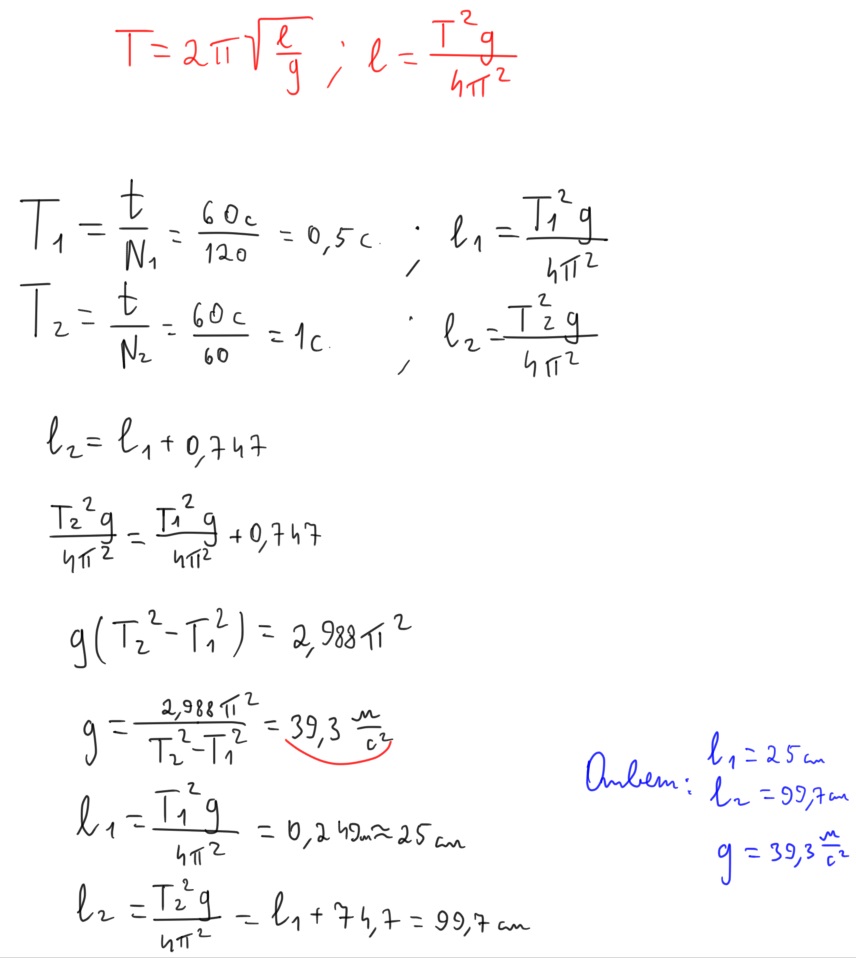 T = 2π√(l/g) ; l = T²g/4π²
T₁ = t/N₁ = 60с/120 = 0,5с. ; l₁ = T₁²g/4π²
T₂ = t/N₂ = 60с/60 = 1с. ; l₂ = T₂²g/4π²
l₂ = l₁ + 0,747
T₂²g/4π² = T₁²g/4π² + 0,747
g(T₂² - T₁²) = 2,988π²
g = 2,988π²/T₂² - T₁² = 39,3 м/с²
l₁ = T₁²g/4π² = 0,249м ≈ 25см
l₂ = T₂²g/4π² = l₁ + 74,7 = 99,7см
Ответ: l₁ = 25см
l₂ = 99,7см
g = 39,3 м/с²